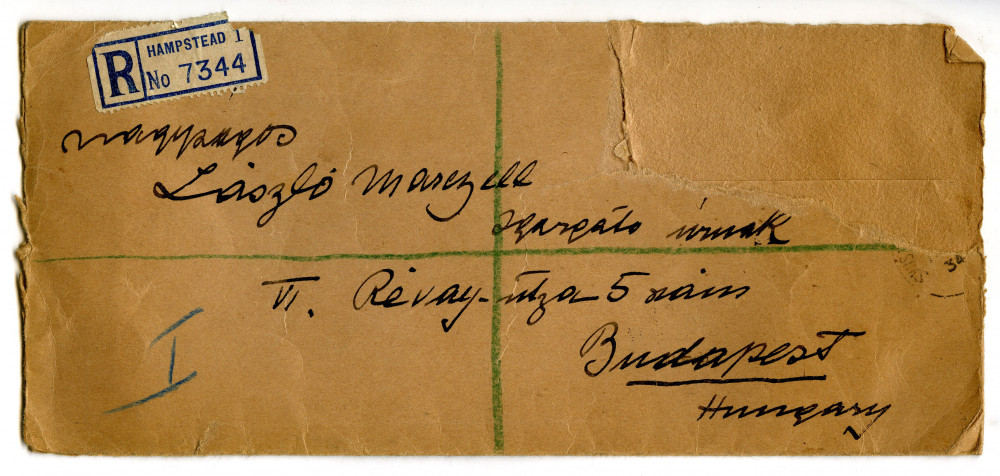 R HAMPSTEAD 1
No 7344
nagysagos
László Marczell
igazgató úrnak
VI. Révay-utza 5 szám
Budapest
Hungary
I